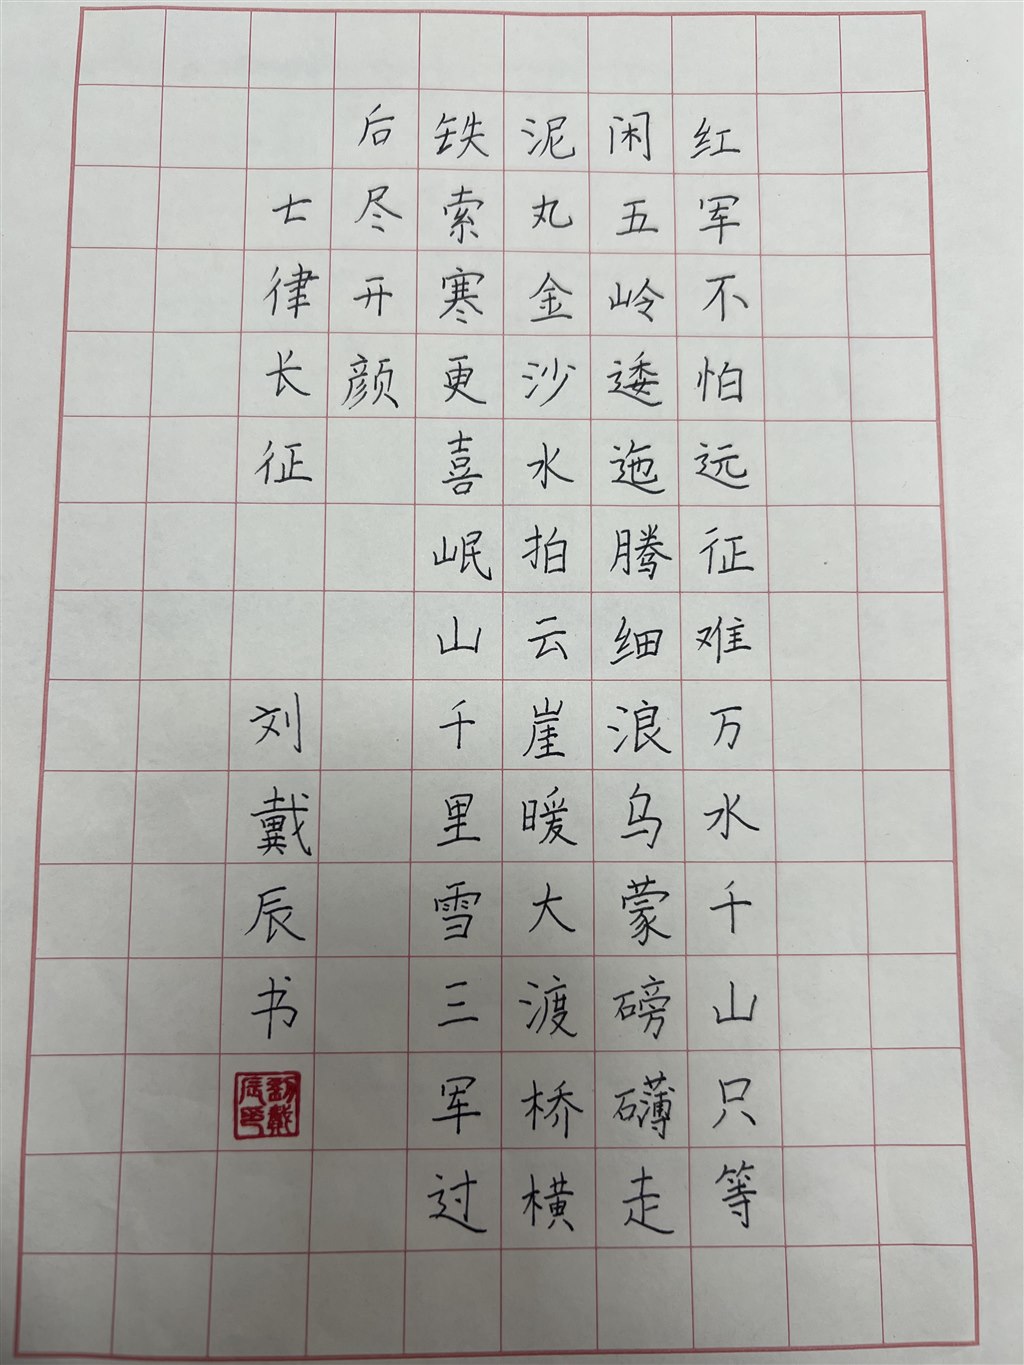 红军不怕远征难万水千山只等
闲五岭逶迤腾细浪乌蒙磅礴走
泥丸金沙水拍云崖暖大渡桥横
铁索寒更喜岷山千里雪三军过
后尽开颜
七律长征 刘戴辰书
劉戴辰印